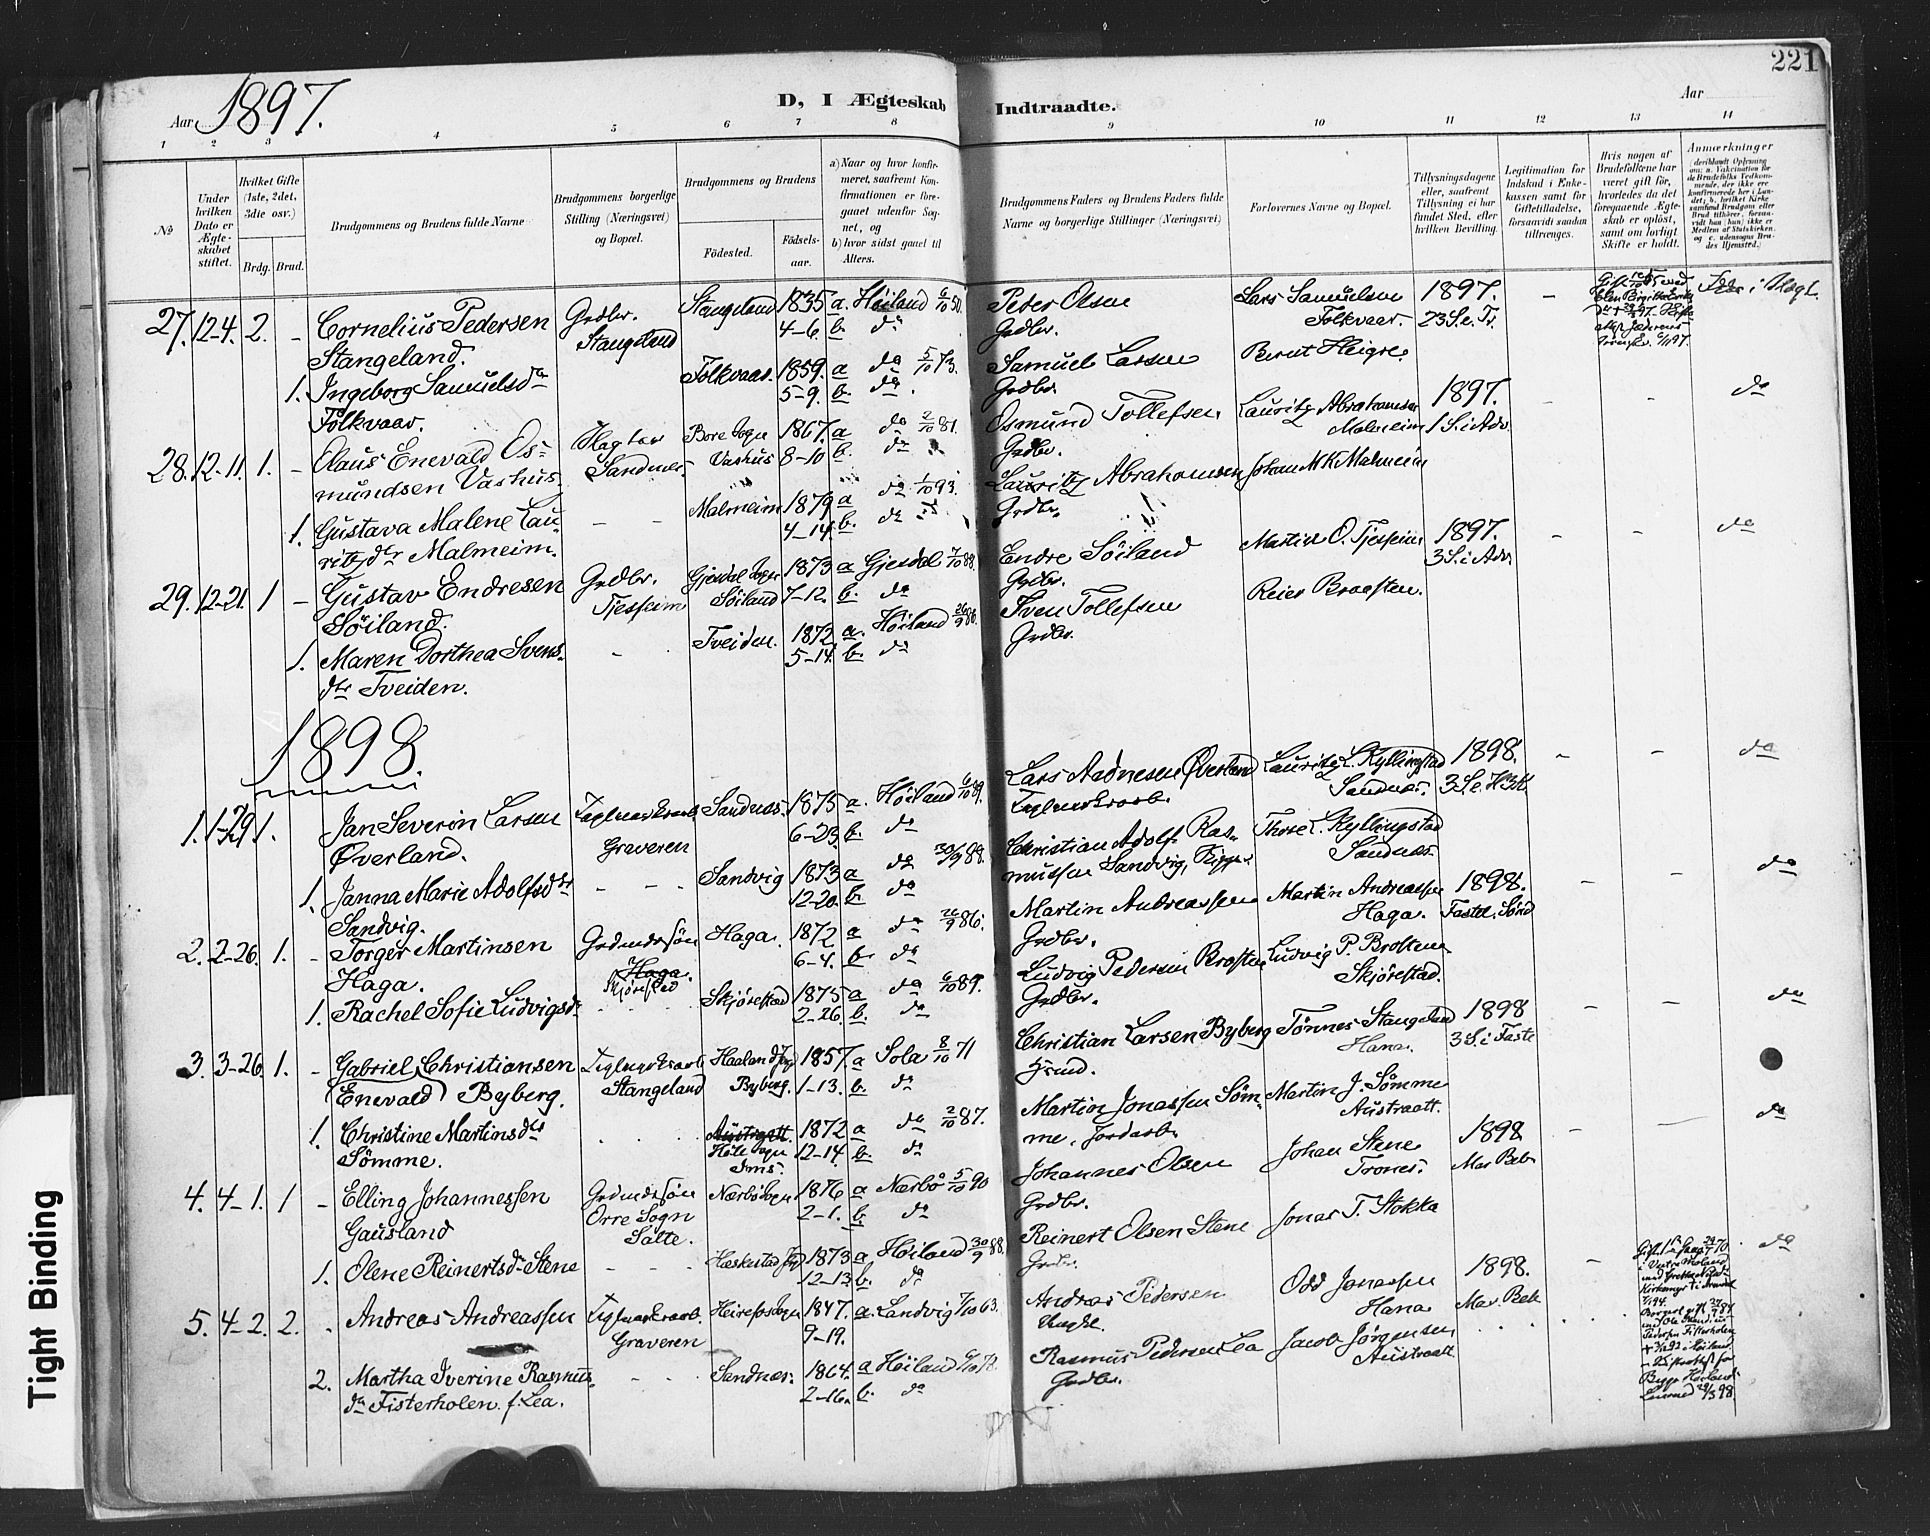 221
Aar 1897.
D, I Ægteskab Indtraadte.
Aar
1 2 3 4 5 6 7 8 9 10 11 12 13 14
No
Under hvilken Dato er Ægteskabet stiftet.
Hvilket Gifte (1ste, 2det, 3die osv.)
Brdg. Brud.
Brudgommens og Brudens fulde Navne
Brudgommens borgerlige Stilling (Næringsvei) og Bopæl.
Brudgommens og Brudens
Fødested. Fødsels-aar.
a) Naar og hvor konfirmeret, saafremt Konfirmationen er foregaaet udenfor Sognet, og
b) hvor sidst gaaet til Alters.
Brudgommens Faders og Brudens Faders fulde Navne og borgerlige Stillinger (Næringsvei)
Forlovernes Navne og Bopæl.
Tillysningsdagene eller, saafremt Tillysning ei har fundet Sted, efter hvilken Bevilling.
Legitimation for Indskud i Enkekassen samt for Giftetilladelse, forsaavidt saadan tiltrænges.
Hvis nogen af Brudefolkene har været gift før, hvorledes da det foregaaende Ægteskab er opløst, samt om lovligt Skifte er holdt.
Anmærkninger
27. 12-4. 2. - Cornelius Pedersen Stangeland. Grdbr. Stangeland Stangeland 1835 4-6. a. Høiland 6/10 50. b. do Peder Olsen Grdbr. Lars Samuelsen Folkvaar. 1897. 23 S. e. Tr. -
1. Ingeborg Samuelsdr Folkvaar. Folkvaar. 1859. 5-9. a do 5/10 73. b. do. Samuel Larsen Grdbr. Bernt Heigre.
28. 12-11. 1. - Olaus Enevald Osmundsen Vashus. Sandnes. Bore Sogn Vashus 1867. 8-10 a do 2/10 81. b. do Osmund Tollefsen Grdbr. Lauritz Abrahamsen Malmeim 1897. 1 S. i Adv. - - do
1. Gustava Malene Lauritzdtr Malmeim. - - Malmeim 1879 4-14. a do 1/10 93. b. do Lauritz Abrahamsen Grdbr. Johan M K Malmeim
29. 12-21. 1 - Gustav Endresen Søiland. Grdbr. Tjessem Gjesdal Sogn Søiland 1873 7-12. a Gjesdal 7/10 88. b. do Endre Søiland Grdbr. 1897. 3 S. i Adv. - - do
1. Maren Dorthea Svensdtr Tveiden. - Tveiden. 1872 5-14. a. Høiland 26/9 86. b. do Sven Tollefsen Grdbr. Reier Braasten.
1898.
1. 1-29 1. Jan Severin Larsen Øverland. Graveren Sandnæs. 1875 6-23. a. Høiland 6/10 89. b. do Lars Aadnesen Øverland Lauritz L. Kyllingstad Sandnæs. 1898. - - do
1. Janna Marie Adolfsdtr Sandvig. - - - Sandvig 1873 12-20. a do 30/9 88. b. do Christian Adolf Rasmussen Sandvig, Thore L. Kyllingstad Sandnæs.
2. 2-26. 1. - Torger Martinsen Haga. Grdmandssøn Haga. Skjørestad Haga. 1872 6-4. a do 26/9 86. b. do Martin Andreassen Grdbr. Martin Andreassen Haga. 1898. Fastel. Sønd - - do
1. Rachel Sofie Ludvigsdr Skjørestad 1875 2-26. a do 6/10 89. b. do Ludvig Pedersen Brasten Grdbr. Ludvig P. Brosten Skjørestad.
3. 3-26. 1. - Gabriel Christiansen (Enevald) Byberg. Stangeland Haaland Sogn Byberg. 1857. 1-13. a Sola 8/10 71 b. do Christian Larsen Byberg Tønnes Stangeland Hana. 1898 3 S. i Faste - - do
1. Christine Martinsdtr Sømme. Austraatt. Høle Sogn Ims. 1872 12-14. a do 2/10 87. b. do Martin Jonassen Sømme, Jordarb. Martin J. Sømme Austraatt.
4. 4-1. 1 - Elling Johannessen Gausland Grdmandssøn Orre Sogn Salte. Nærbø Sogn 1876 2-1. a Nærbø 5/10 90 b. do Johannes Olsen Grdbr. Johan Stene Trones. 1898 Mar. Beb. - do
1. Olene Reinertsdr Stene - - - Heskestad Sogn 1873 12-13. a Høiland 30/9 88. b. do Reinert Olsen Stene Grdbr. Jonas T. Stokka
5. 4-2. 2. Andreas Andreassen Graveren 1847. 9-19. a. Landvig 7/10 63. Andreas Pedersen Odd Jonassen Hana. 1898. Mar. Beb. do
2. Martha Iverine Rasmusdr Fisterholen f. Lea. - - Sandnæs. 1864. 2-16. a Høiland 6/10 78. b. do Rasmus Pedersen Lea Grdbr. Jacob Jørgensen Austraatt
Tight Binding